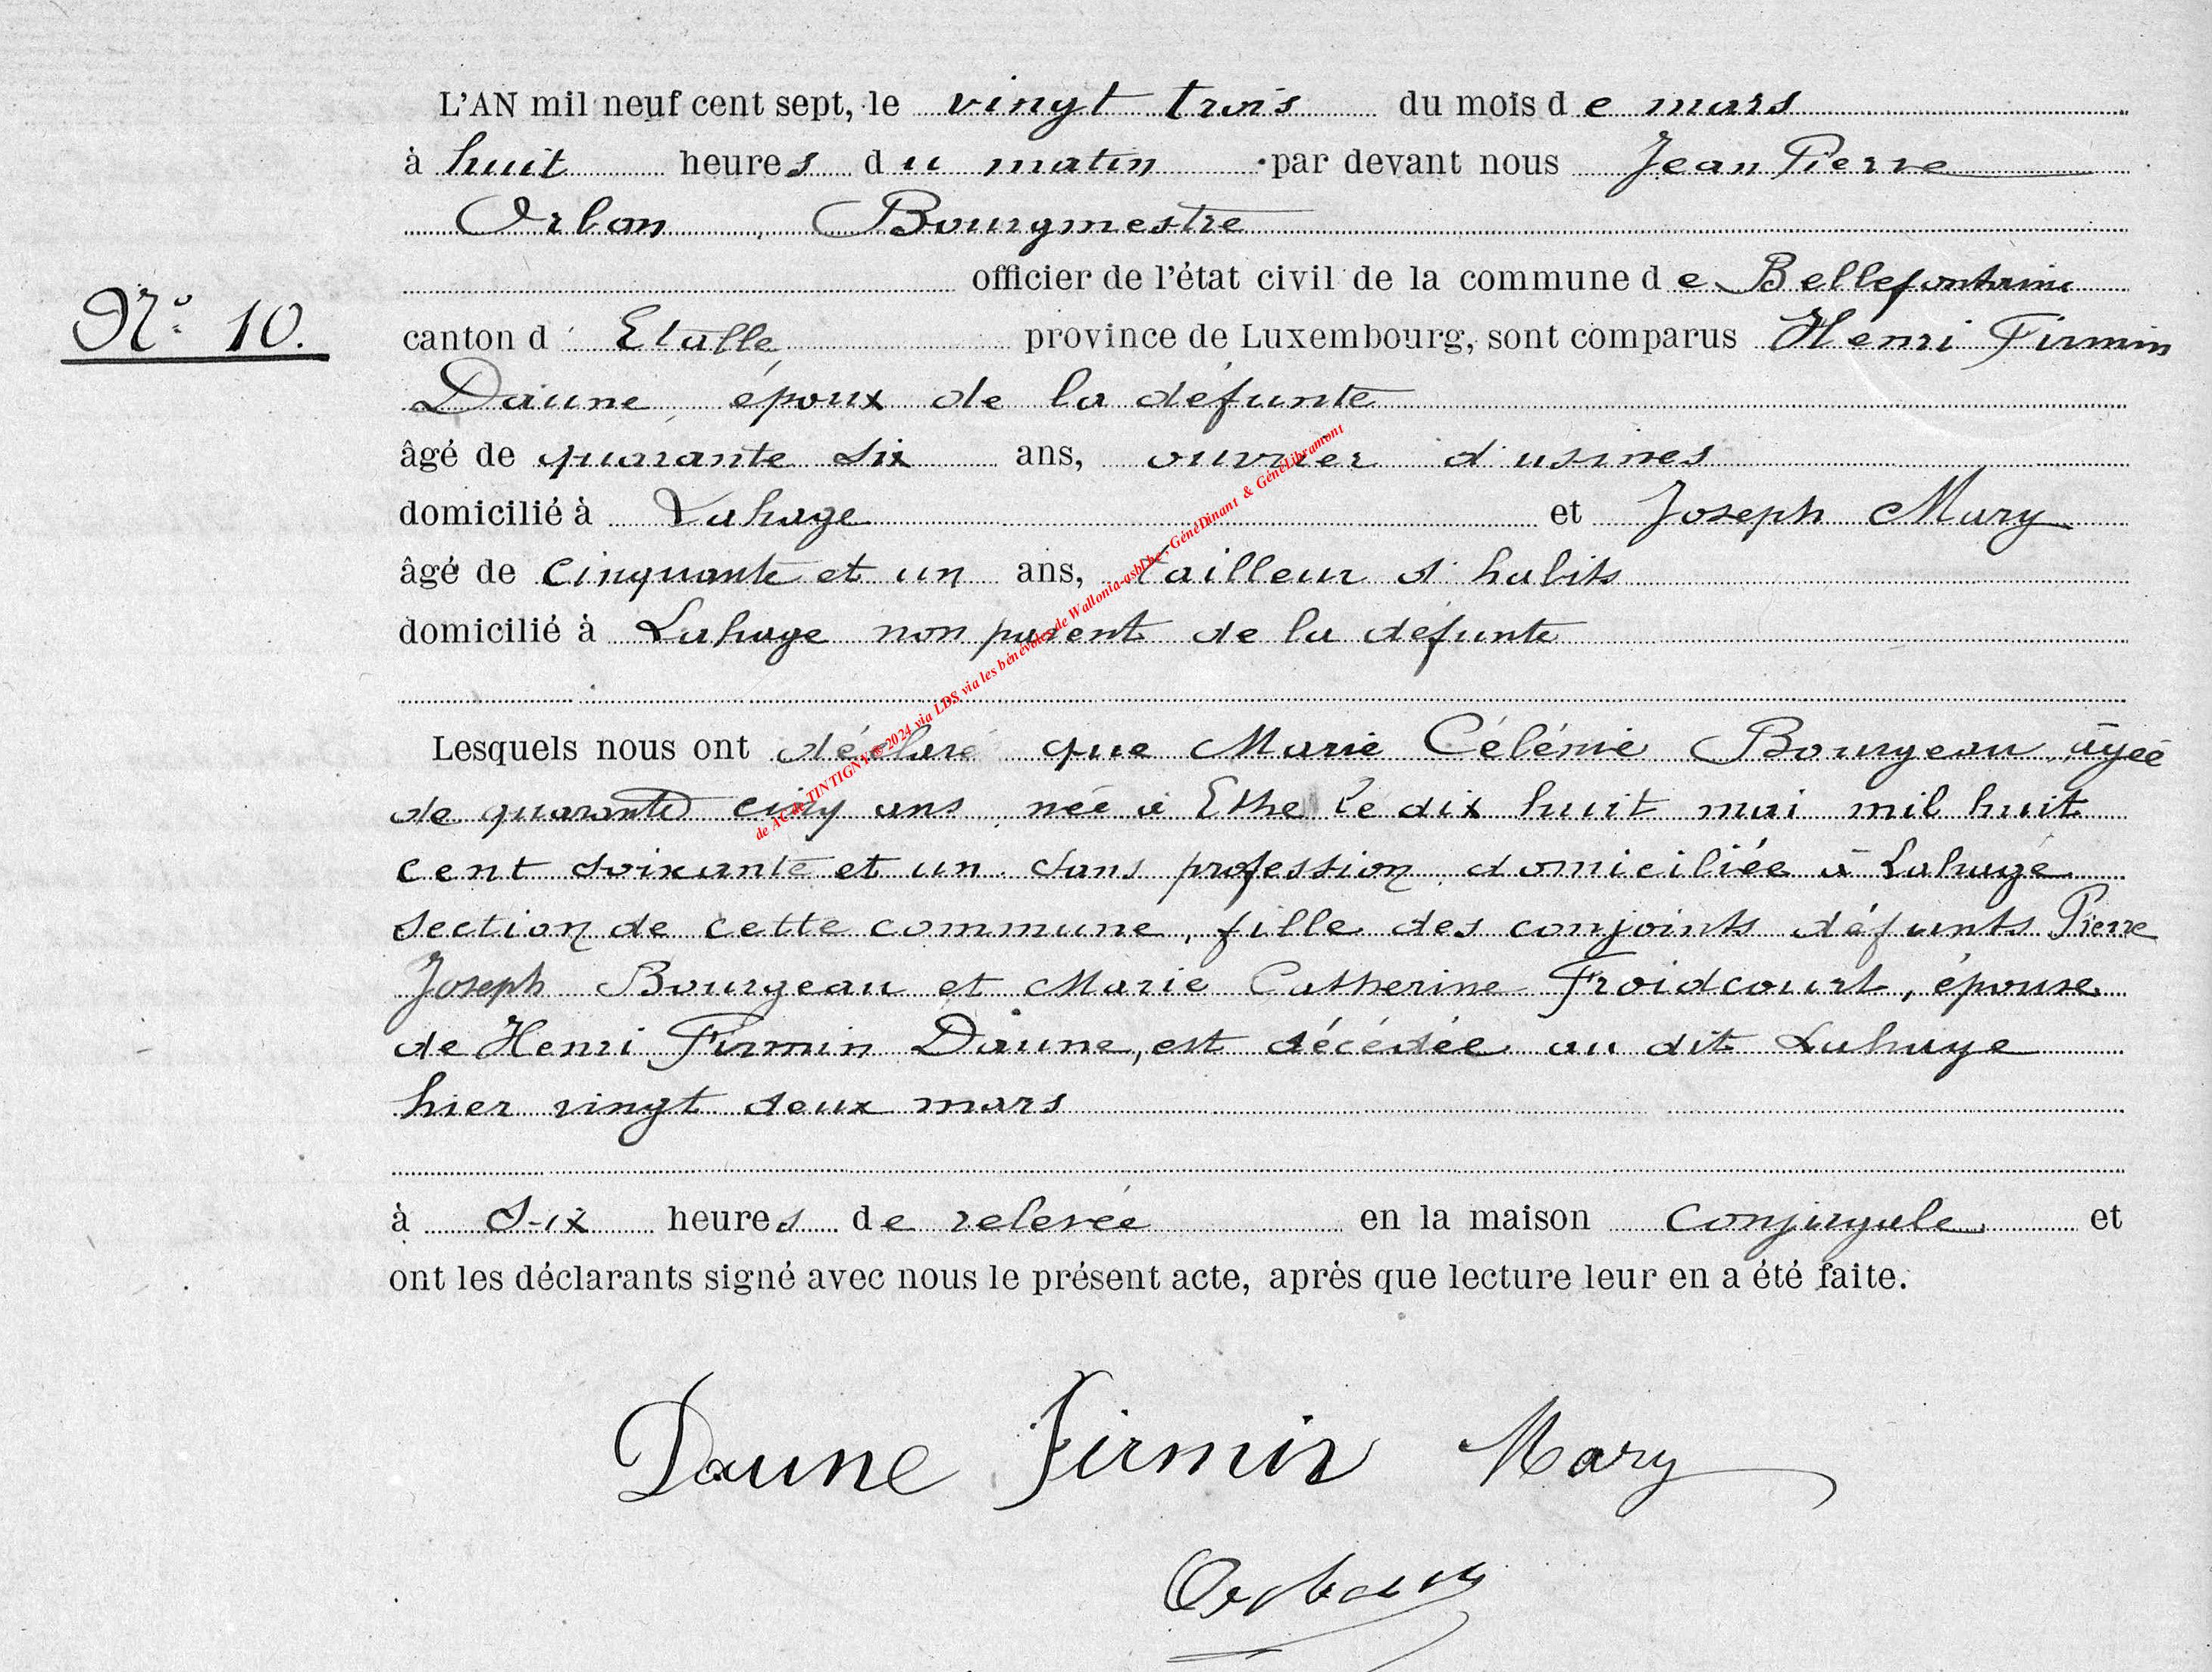 L'AN mil neuf cent sept, le vingt trois du mois de mars
à huit heures du matin par devant nous Jean Pierre
Orban, Bourgmestre
officier de l'état civil de la commune de Bellefontaine
N° 10.
canton d'Etalle, province de Luxembourg, sont comparus Henri Firmin
Daune, époux de la défunte
âgé de quarante six ans, ouvrier d'usines
domicilié à Lahage et Joseph Mary
âgé de cinquante et un ans, tailleur d'habits
domicilié à Lahage non parent de la défunte
Lesquels nous ont déclaré que Marie Célénie Bourgeau, âgée
de quarante cinq ans, née à Ethe le dix huit mai mil huit
cent soixante et un, sans profession, domiciliée à Lahage
section de cette commune, fille des conjoints défunts Pierre
Joseph Bourgeau et Marie Catherine Froidcourt, épouse
de Henri Firmin Daune, est décédée au dit Lahage
hier vingt deux mars
à six heures de relevée en la maison conjugale, et
ont les déclarants signé avec nous le présent acte, après que lecture leur en a été faite.
Daune Firmin Mary
Orban
de AC de TINTIGNY © 2024 via LDS, via les bénévoles de Wallonia-asbl.be, GénéDinant & GénéLibramont